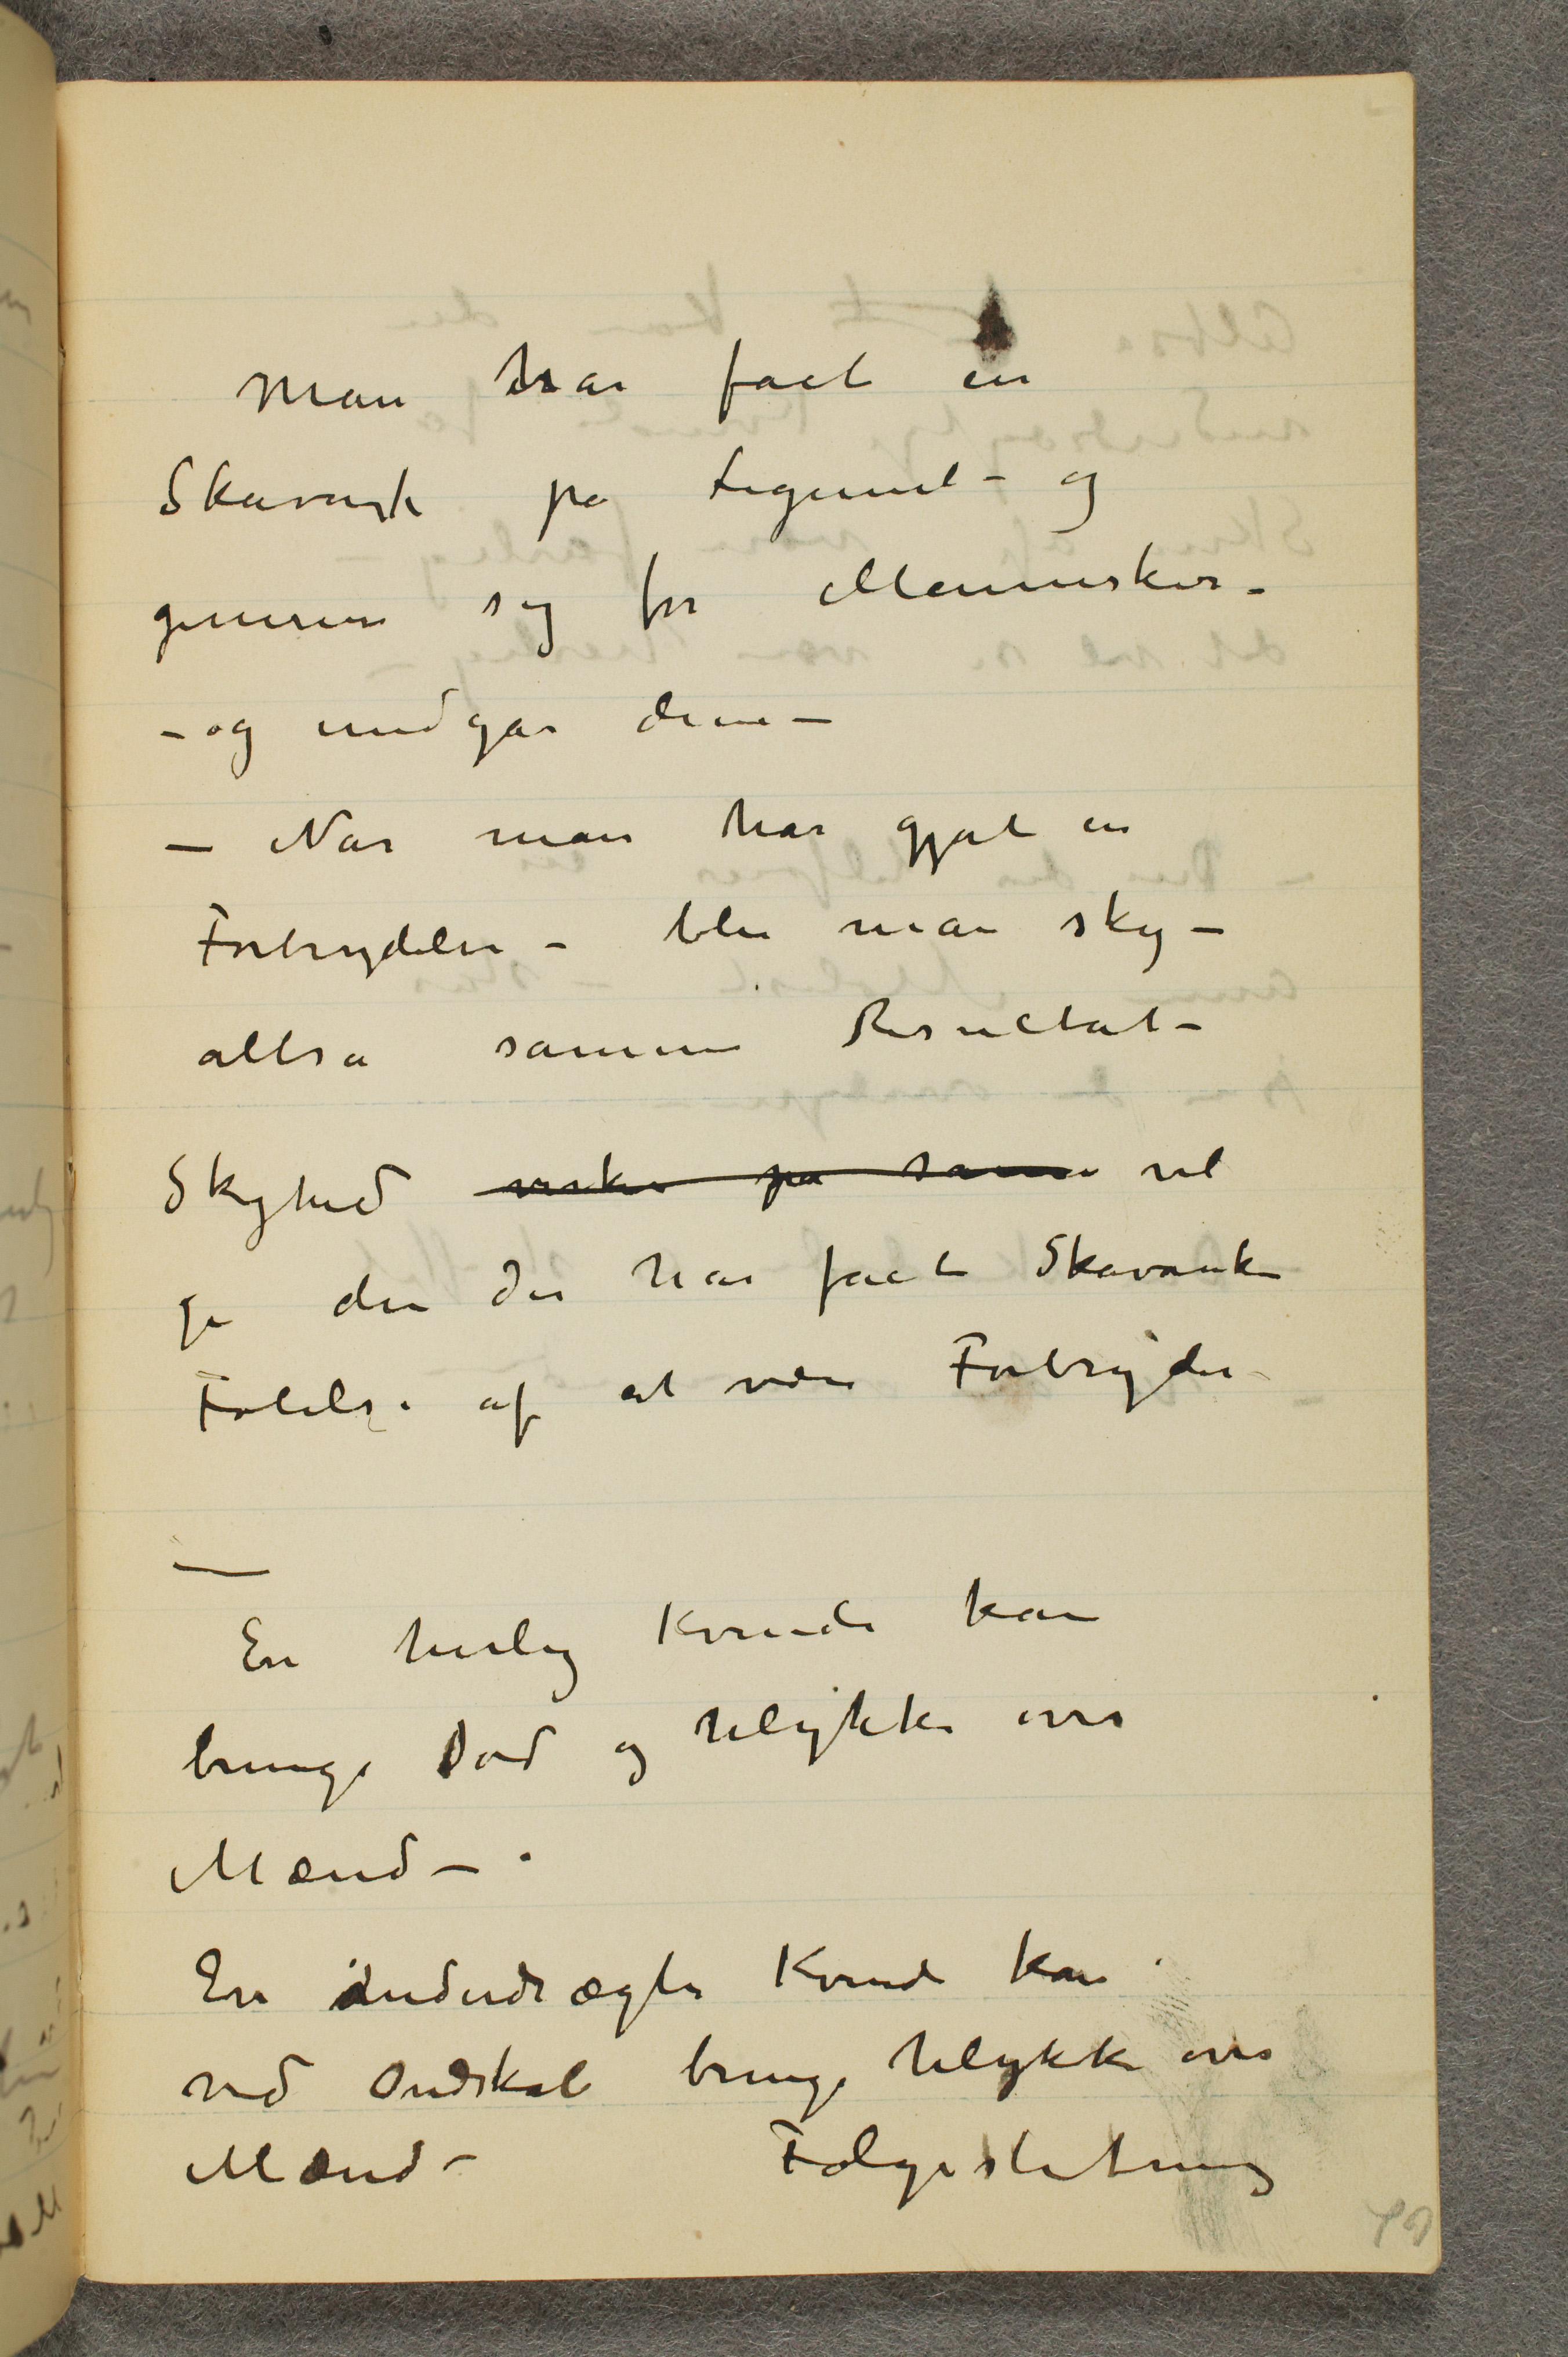 Man har fået en
Skavank på Legemet – og
generer sig for Mennesker –
– og undgår dem –
– Når man har gjort en
Forbrydelse – blir man sky –
altså samme Resultat –
Skyhed virker på samme vil
gi den der har fået Skavanken
Følelse af at være Forbryder
—
En herlig Kvinde kan
bringe Død og Ulykke over
Mænd –
En underdrægtig Kvinde kan
ved Ondskab bringe Ulykke over
Mænd – Følgeslutning